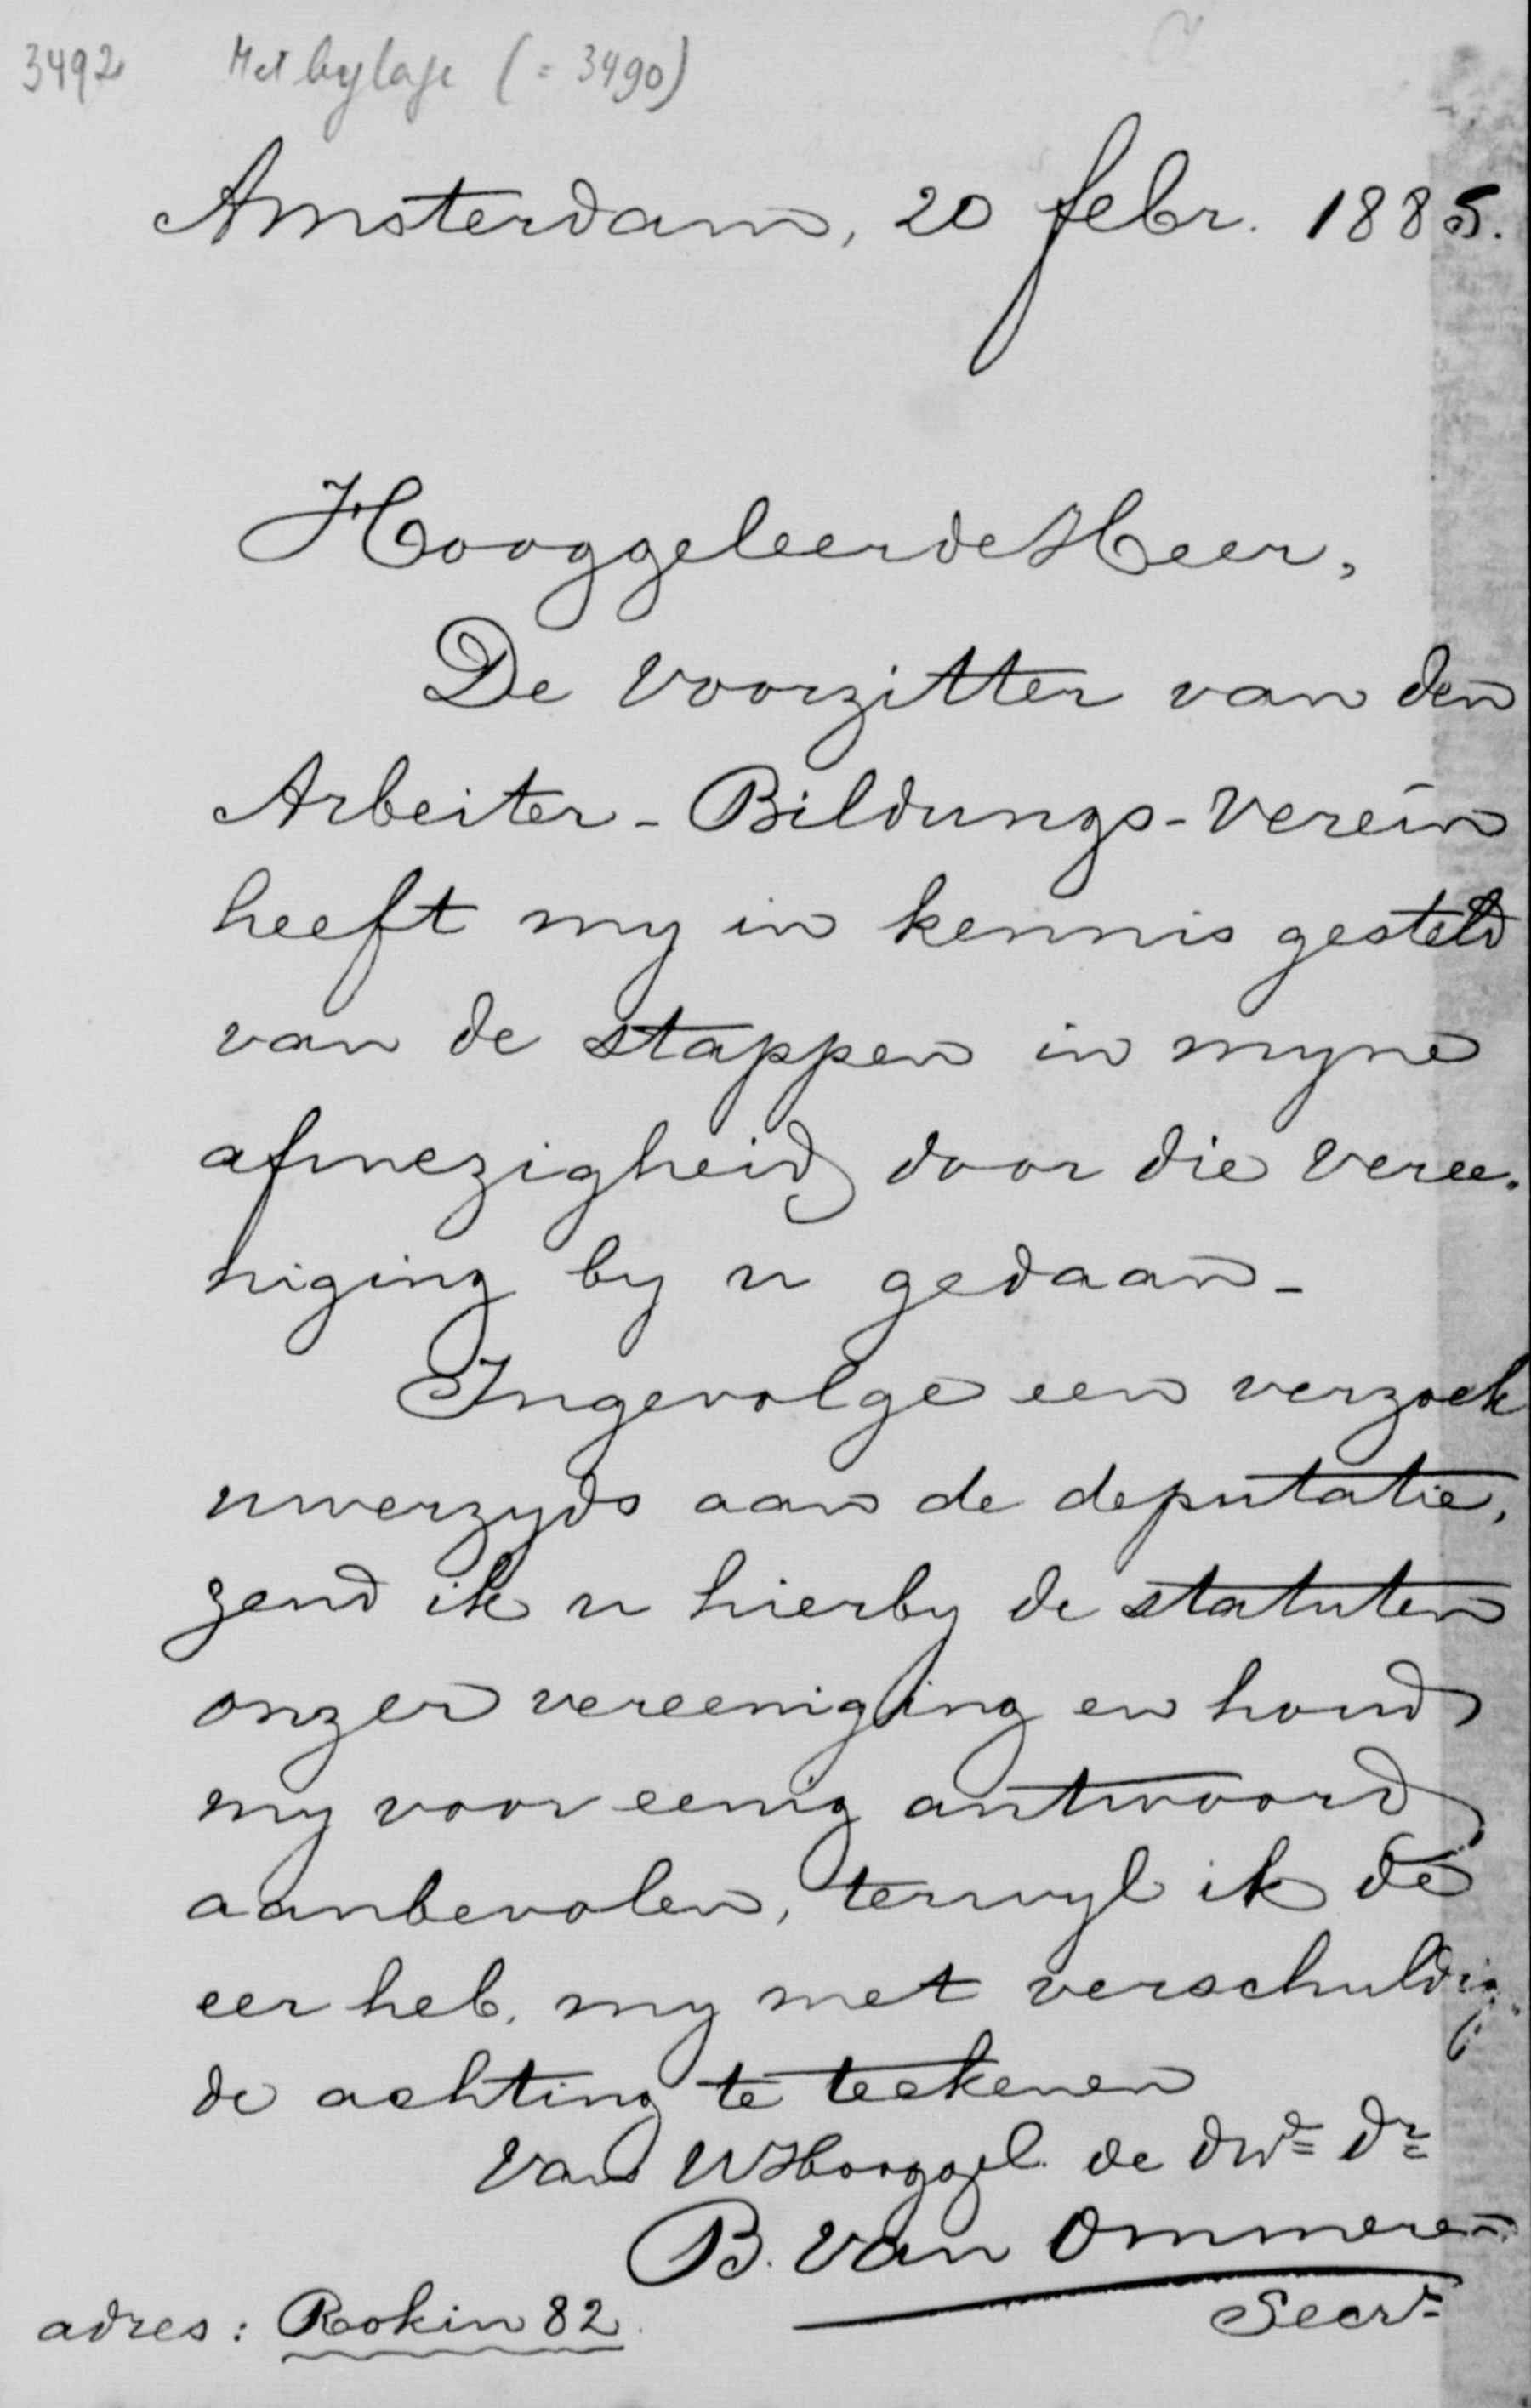 3492 Met bylage (= 3490)
Amsterdam, 20 febr. 1885.
Hooggeleerde Heer,
De Voorzitter van den
Arbeiter-Bildungs-Verein
heeft my in kennis gesteld
van de stappen in myne
afwezigheid door die Veree-
niging by u gedaan -
Ingevolge een verzoek
uwerzyds aan de deputatie,
zend ik u hierby de statuten
onzer vereeniging en houd
my voor eenig antwoord
aanbevolen, terwyl ik de
eer heb, my met verschuldig-
de achting te teekenen
Van UHooggel. de dwe dr
B. Van Ommeren
Secrs
adres: Rokin 82.